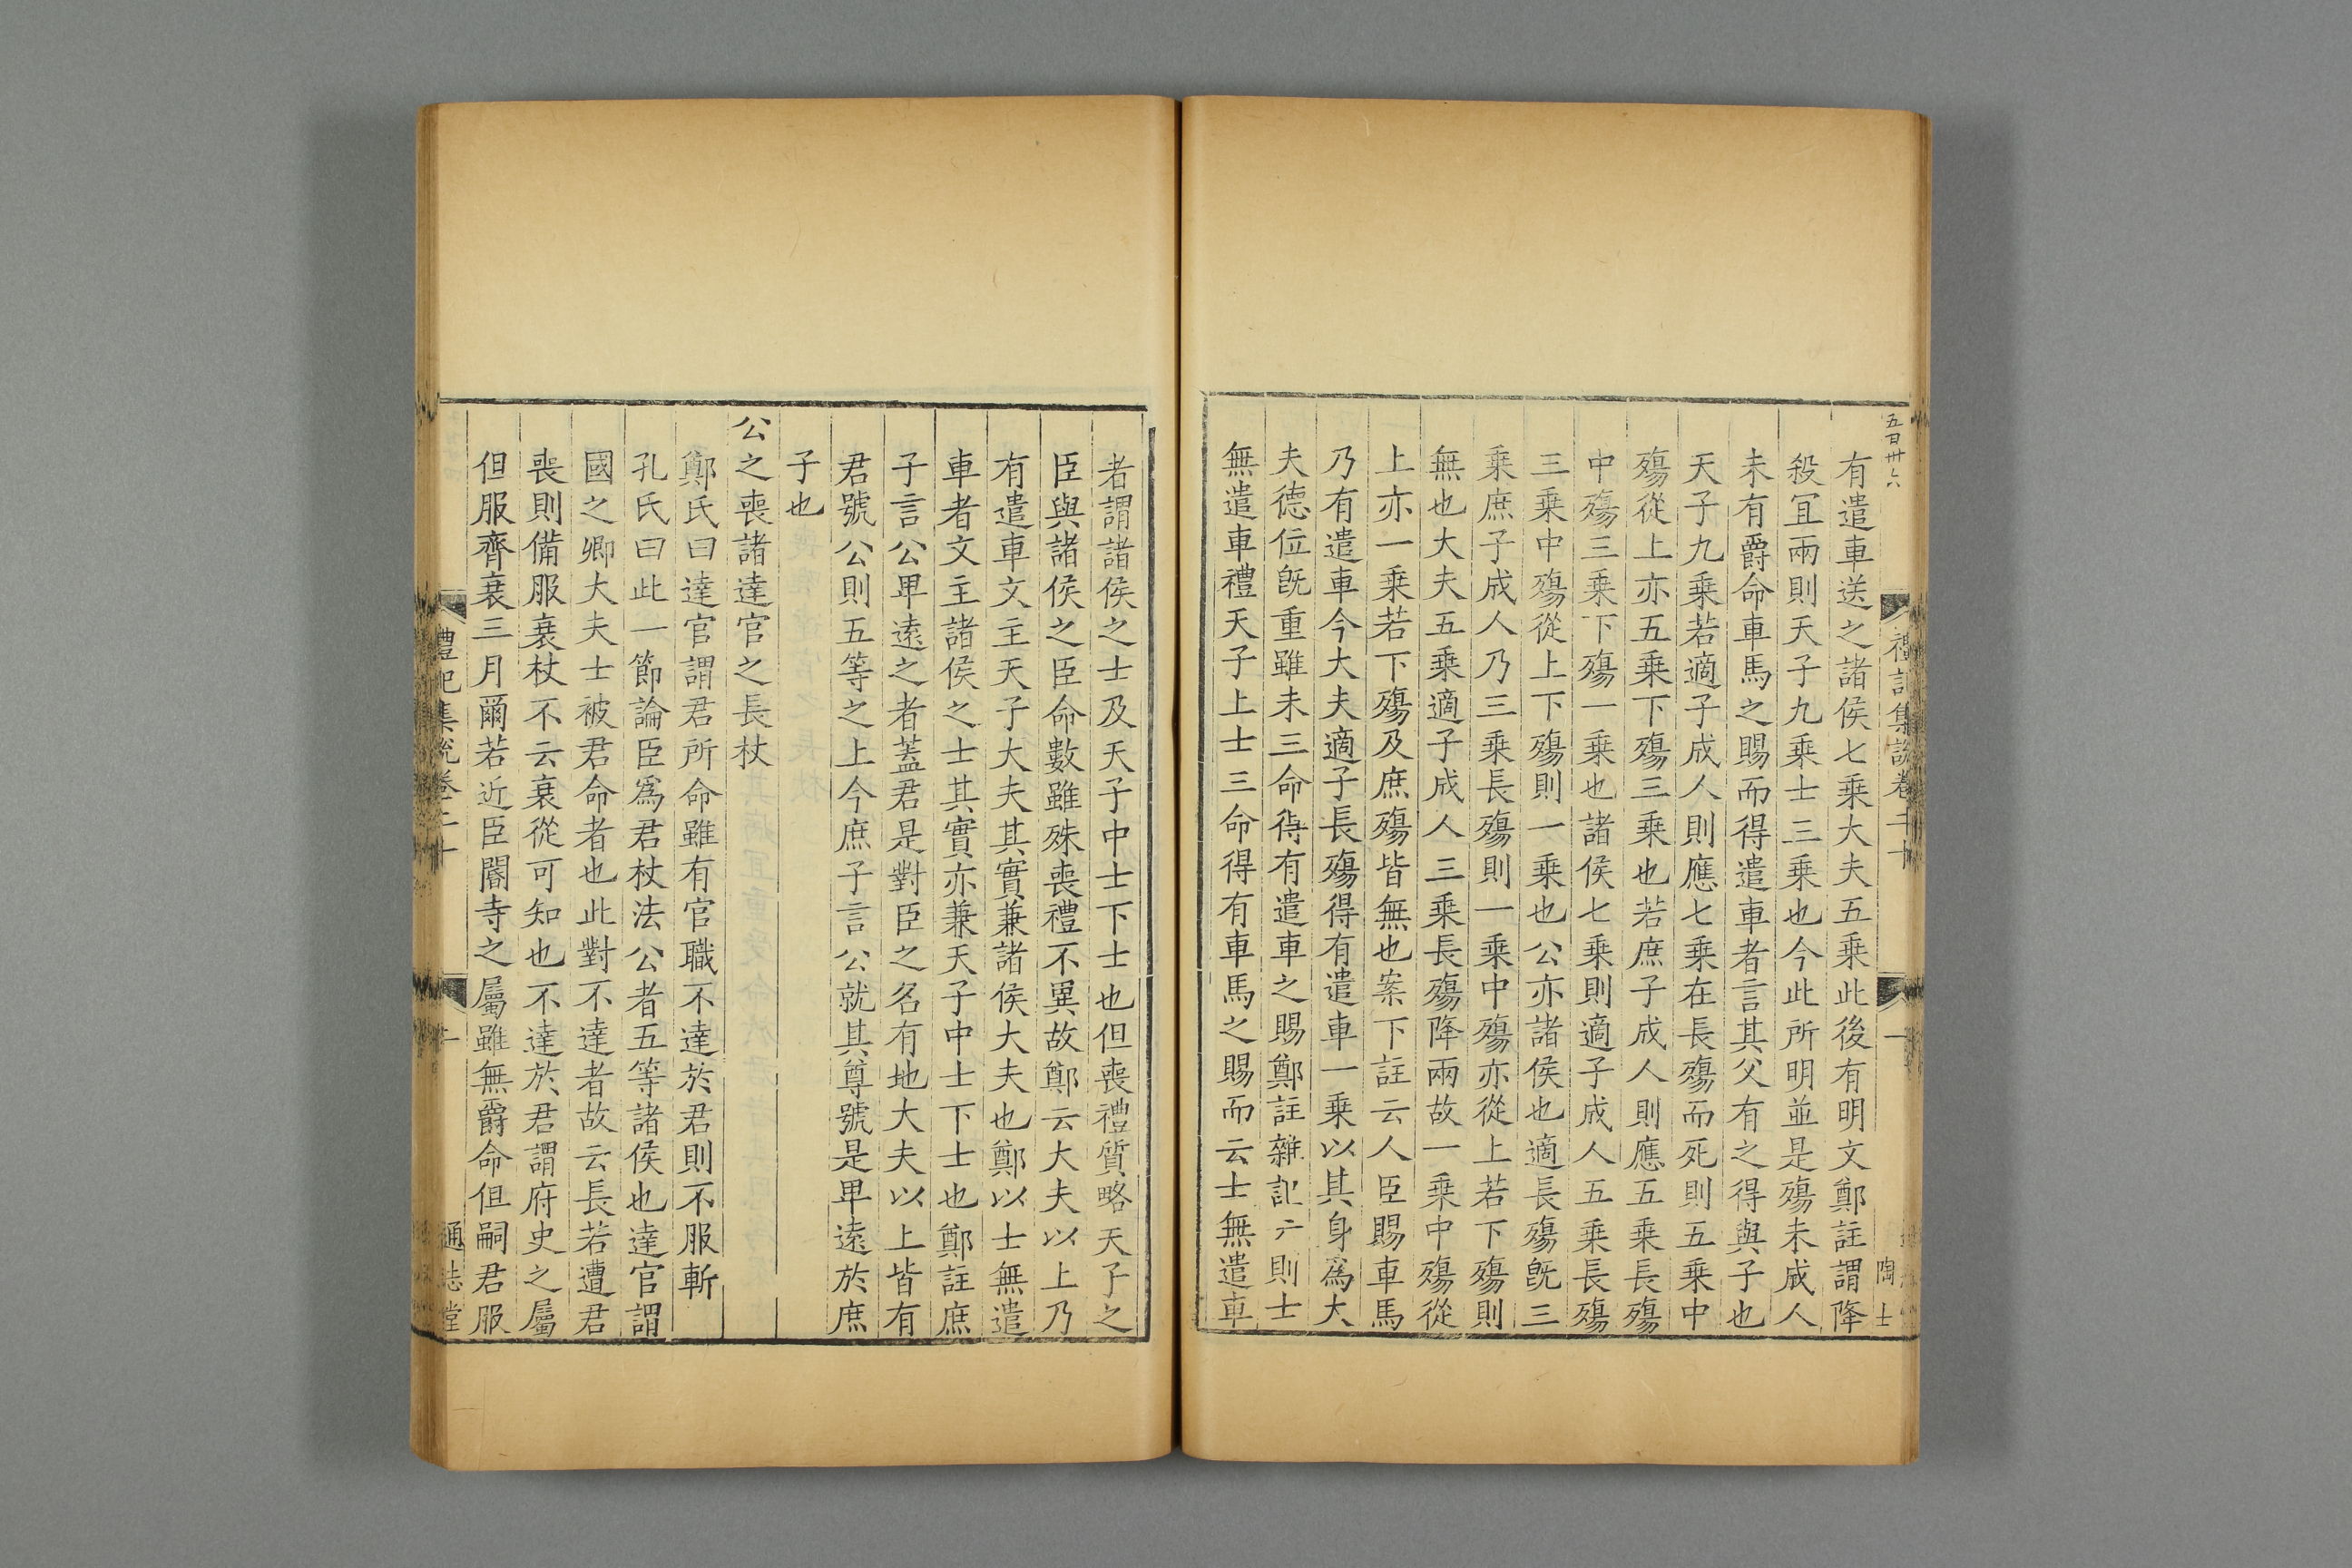 五百卅六
禮記集說卷二十
一
陶士
有遣車送之諸侯七乗大夫五乗此後有明文鄭註謂降
殺冝兩則天子九乗士三乗也今此所明並是殤未成人
未有爵命車馬之賜而得遣車者言其父有之得與子也
天子九乗若適子成人則應七乗在長殤而死則五乗中
殤從上亦五乗下殤三乗也若庶子成人則應五乗長殤
中殤三乗下殤一乗也諸侯七乗則適子成人五乗長殤
三乗中殤從上下殤則一乗也公亦諸侯也適長殤旣三
乗庶子成人乃三乗長殤則一乗中殤亦從上若下殤則
無也大夫五乗適子成人三乗長殤降兩故一乗中殤從
上亦一乗若下殤及庶殤皆無也案下註云人臣賜車馬
乃有遣車今大夫適子長殤得有遣車一乗以其身爲大
夫德位旣重雖未三命得有遣車之賜鄭註雜記則士
無遣車禮天子上士三命得有車馬之賜而云士無遣車
者謂諸侯之士及天子中士下士也但喪禮質略天子之
臣與諸侯之臣命數雖殊喪禮不異故鄭云大夫以上乃
有遣車文主天子大夫其實兼諸侯大夫也鄭以士無遣
車者文主諸侯之士其實亦兼天子中士下士也鄭註庶
子言公卑遠之者蓋君是對臣之名有地大夫以上皆有
君號公則五等之上今庶子言公就其尊號是卑遠於庶
子也
公之喪諸達官之長杖
鄭氏曰達官謂君所命雖有官職不達於君則不服斬
孔氏曰此一節論臣爲君杖法公者五等諸侯也達官謂
國之卿大夫士被君命者也此對不達者故云長若遭君
喪則備服衰杖不云衰從可知也不達於君謂府史之屬
但服齊衰三月爾若近臣閽寺之屬雖無爵命但嗣君服
禮記集說卷二十
通志堂